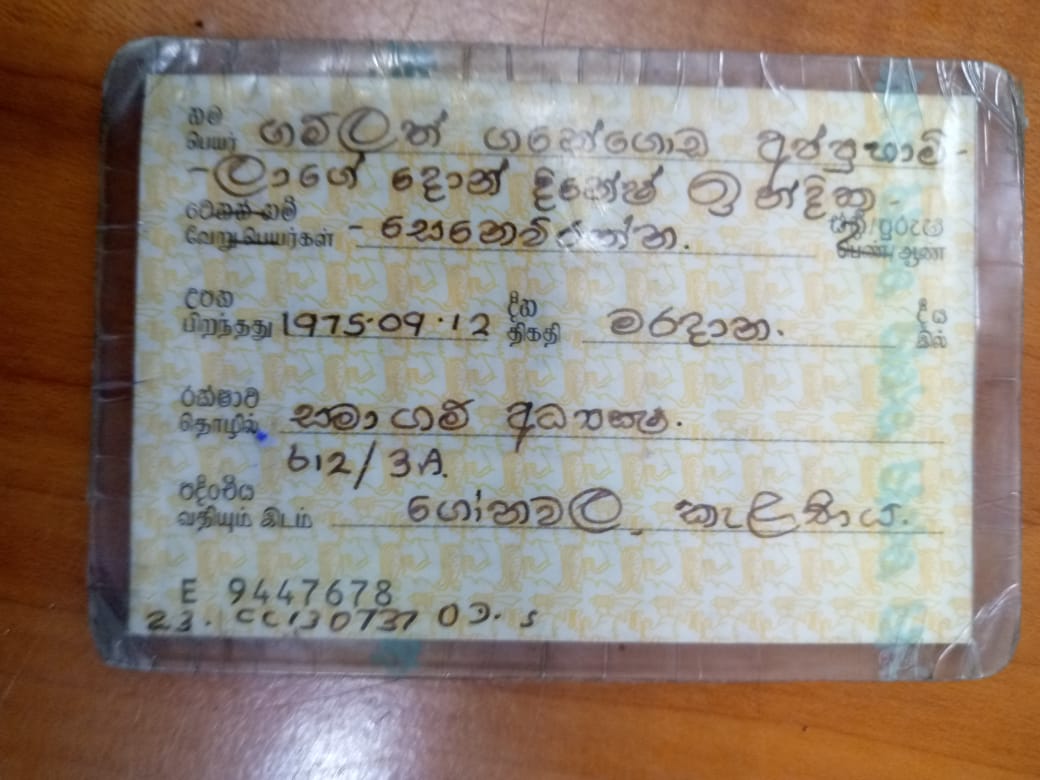 නම ගම්ලත් ගනේගොඩ අප්පුහාමි-
பெயர்
-ලාගේ දොන් දිනේෂ් ඉන්දික -
වෙනත් නම්
வேறு பெயர்கள் - සෙනෙවිරත්න. ස්ත්‍රී/පුරුෂ
பெண்/ஆண்
උපන දින දීය
பிறந்தது 1975.09.12 திகதி මරදාන. இல்
රක්ෂාව
தொழில் සමාගම් අධ්‍යක්ෂ.
612/3A.
පදිංචිය
வதியும் இடம் ගෝනවල, කැළණිය.
E 9447678